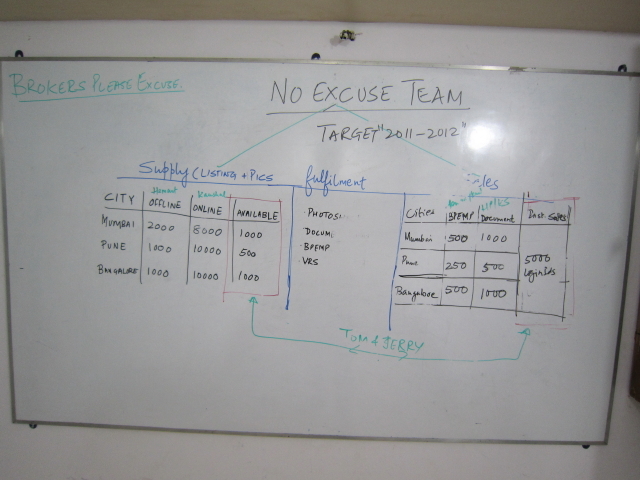 BROKERS PLEASE EXCUSE.
NO EXCUSE TEAM
TARGET "2011-2012"
Supply (LISTING + PICS
CITY OFFLINE ONLINE AVAILABLE
MUMBAI 2000 8000 1000
PUNE 1000 10000 500
BANGALORE 1000 10000 1000
fulfilment
PHOTOS
DOCUM
BPEMP
VRS
Cities BPEMP Document
Mumbai 500 1000
Pune 250 500
Bangalore 500 1000
Sales
5000
loginIds
TOM & JERRY